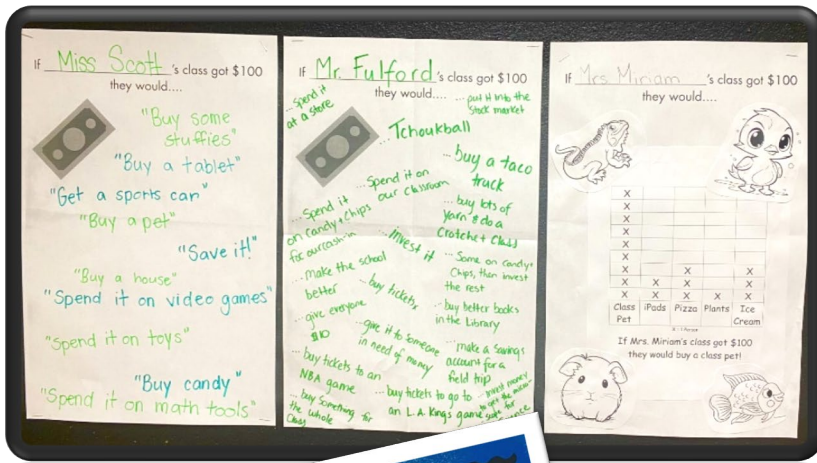 If Miss Scott 's class got $100
they would....
"Buy some
stuffies"
"Buy a tablet"
"Get a sports car"
"Buy a pet"
"Save it!"
"Buy a house"
"Spend it on video games"
"Spend it on toys"
"Buy candy"
"Spend it on math tools"
If Mr. Fulford 's class got $100
they would....
...Spend it
at a store
...put it into the
Stock market
...Tchoukball
...buy a taco
truck
...Spend it on
our classroom
...Spend it
on candy+Chips
for our cash-in
...buy lots of
yarn & do a
Crotchet Class
...invest it
...Some on candy+
Chips, then invest
the rest
...make the school
better
...buy tickets
...give everyone
$10
...buy better books
in the Library
...give it to someone
in need of money
...make a Savings
account for a
field trip
...buy tickets to an
NBA game
...buy tickets to go to
an L.A. Kings game
...invest money
...buy Something for
the whole
Class
If Mrs Miriam 's class got $100
they would....
X
X
X
X
X
X
X X
X X X X
X X X X X
Class Pet iPads Pizza Plants Ice Cream
If Mrs. Miriam's class got $100
they would buy a class pet!